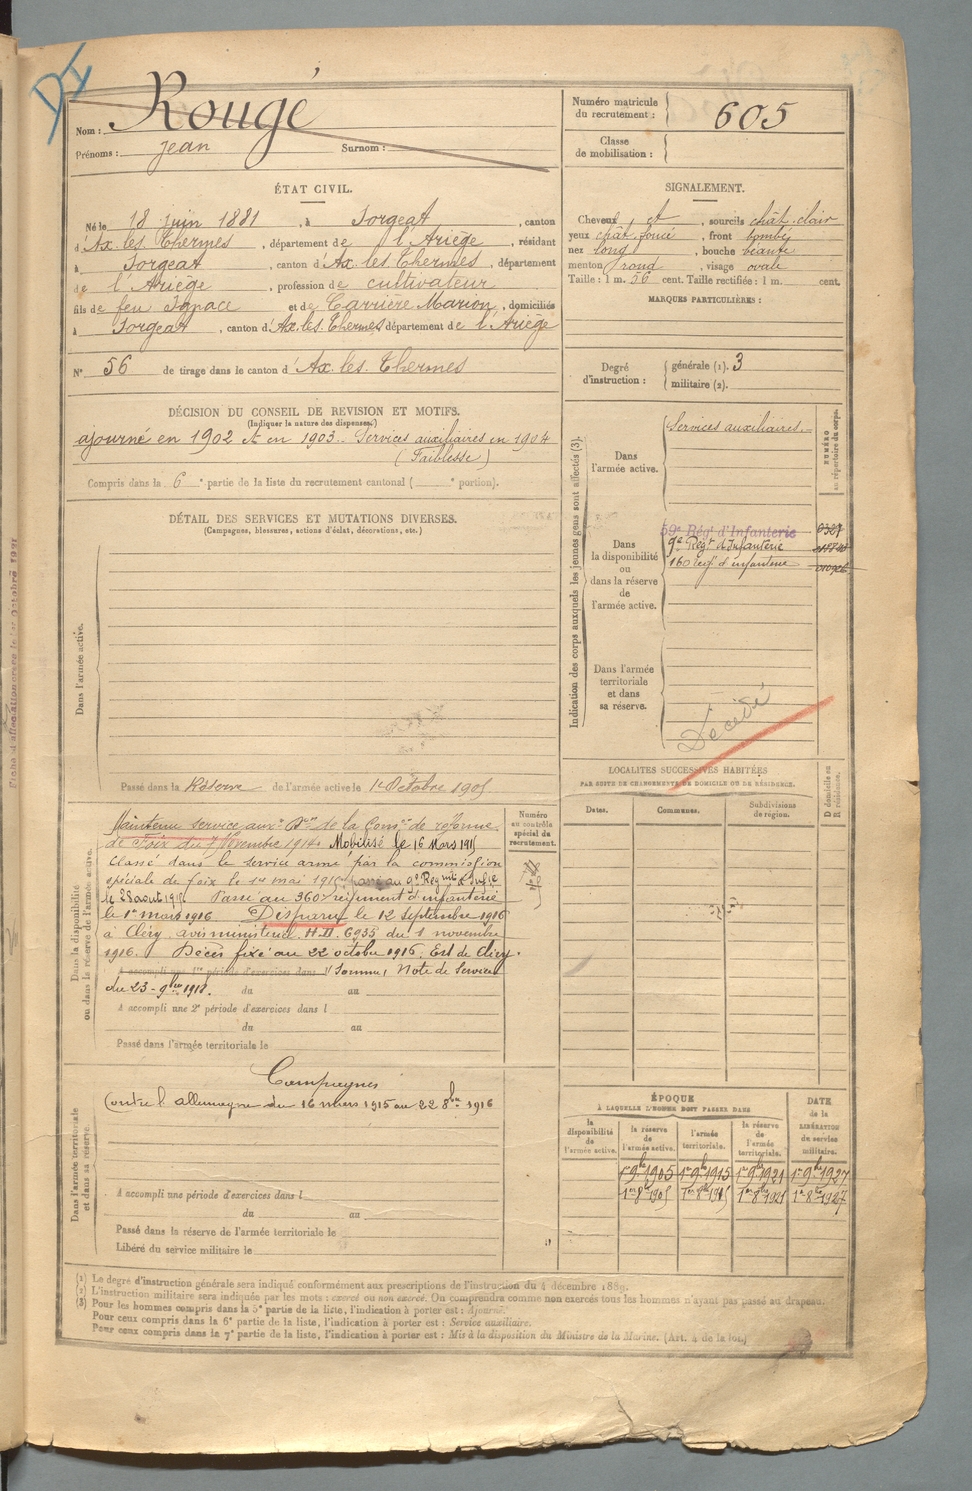 DI
Nom : Rougé
Prénoms : Jean Surnom :
Numéro matricule du recrutement : 605
Classe de mobilisation :
ÉTAT CIVIL.
Né le 18 juin 1881, à Sorgeat, canton
d'Ax les Thermes, département de l'Ariège, résidant
à Sorgeat, canton d'Ax les Thermes, département
de l'Ariège, profession de cultivateur
fils de feu Ignace et de Carrière Marion, domiciliés
à Sorgeat, canton d'Ax. les. Thermes département de l'Ariège
N° 56 de tirage dans le canton d'Ax. les. Thermes
SIGNALEMENT.
Cheveux et, sourcils chât. clair
yeux chât. foncé, front bombé
nez long, bouche béante
menton rond, visage ovale
Taille : 1 m. 56 cent. Taille rectifiée : 1 m. cent.
MARQUES PARTICULIÈRES :
Degré d'instruction : générale (1). 3
militaire (2).
DÉCISION DU CONSEIL DE REVISION ET MOTIFS.
(Indiquer la nature des dispenses.)
ajourné en 1902 et en 1903.. Services auxiliaires en 1904
(Faiblesse)
Compris dans la 6e partie de la liste du recrutement cantonal ( e portion).
DÉTAIL DES SERVICES ET MUTATIONS DIVERSES.
(Campagnes, blessures, actions d'éclat, décorations, etc.)
Dans l'armée active.
Passé dans la Réserve de l'armée active le 1er Octobre 1905
Indication des corps auxquels les jeunes gens sont affectés (3).
NUMÉRO au répertoire du corps.
Dans l'armée active.
Services auxiliaires.
Dans la disponibilité ou dans la réserve de l'armée active.
59e Régt d'Infanterie
9e Régt d'Infanterie
160 regt d'infanterie
Dans l'armée territoriale et dans sa réserve.
Décédé
LOCALITÉS SUCCESSIVES HABITÉES
PAR SUITE DE CHANGEMENTS DE DOMICILE OU DE RÉSIDENCE.
Dates. Communes. Subdivisions de région. D domicile ou R résidence.
Dans la disponibilité ou dans la réserve de l'armée active.
Numéro au contrôle spécial du recrutement.
Maintenu service auxre Don de la Comon de réforme
de Foix du 7 Novembre 1914. Mobilisé le 16 Mars 1915
Classé dans le service armé par la commission
spéciale de foix le 1er mai 1915. passé au 9e Regiment d'Infie
le 28 aout 1915 Passé au 360e régiment d'infanterie
le 1er mars 1916. Disparu le 12 Septembre 1916
à Cléry avis ministériel H.D. 6935 du 1 novembre
1916. Décès fixé au 22 octobre 1916, Est de Cléry
A accompli une 1re période d'exercices dans l (Somme) Note de Service
du 23-9bre 1918. du au
A accompli une 2e période d'exercices dans l
du au
Passé dans l'armée territoriale le
Dans l'armée territoriale et dans sa réserve.
Campagnes
Contre l'allemagne du 16 mars 1915 au 22 8bre 1916
A accompli une période d'exercices dans l
du au
Passé dans la réserve de l'armée territoriale le
Libéré du service militaire le
ÉPOQUE
À LAQUELLE L'HOMME DOIT PASSER DANS
DATE de la LIBÉRATION du service militaire.
la disponibilité de l'armée active. la réserve de l'armée active. l'armée territoriale. la réserve de l'armée territoriale.
1er 9bre 1905 1er 9bre 1915 1er 9bre 1921 1er 9bre 1927
1er 8bre 1905 1er 8bre 1915 1er 8bre 1921 1er 8bre 1927
(1) Le degré d'instruction générale sera indiqué conformément aux prescriptions de l'instruction du 4 décembre 1889.
(2) L'instruction militaire sera indiquée par les mots : exercé ou non exercé. On comprendra comme non exercés tous les hommes n'ayant pas passé au drapeau.
(3) Pour les hommes compris dans la 5e partie de la liste, l'indication à porter est : Ajourné.
Pour ceux compris dans la 6e partie de la liste, l'indication à porter est : Service auxiliaire.
Pour ceux compris dans la 7e partie de la liste, l'indication à porter est : Mis à la disposition du Ministre de la Marine. (Art. 4 de la loi.)